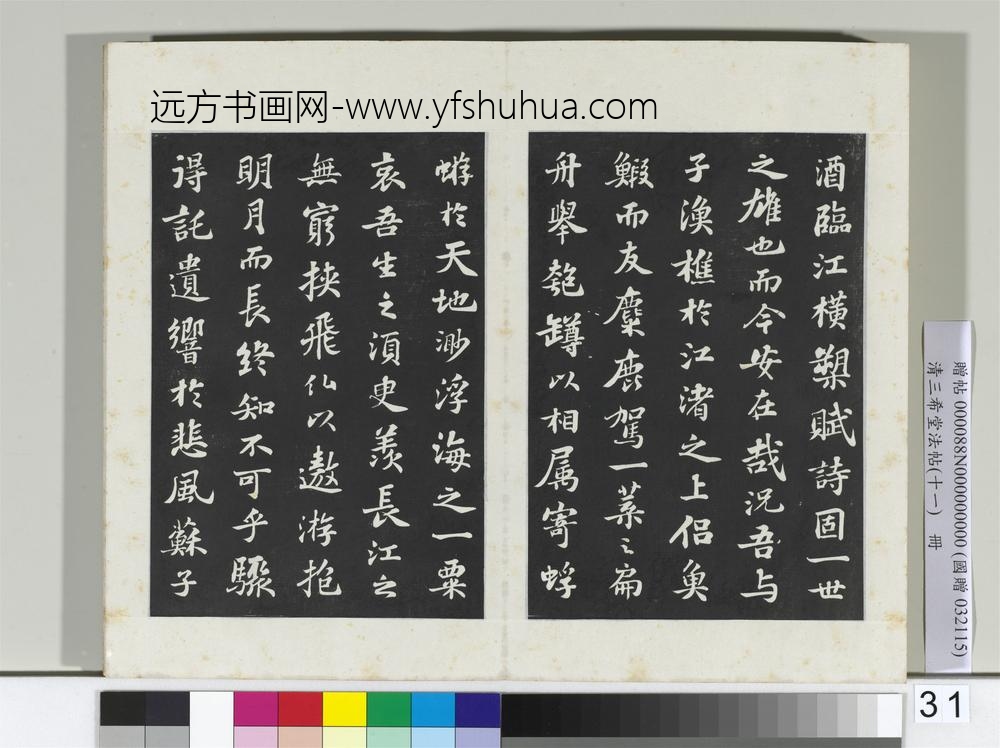 远方书画网-www.yfshuhua.com
酒臨江橫槊賦詩固一世
之雄也而今安在哉況吾与
子漁樵於江渚之上侣魚
鰕而友麋鹿駕一葉之扁
舟舉匏罇以相属寄蜉
蝣於天地渺浮海之一粟
哀吾生之須臾羨長江之
無窮挾飛仙以遨游抱
明月而長終知不可乎驟
得託遺響於悲風蘇子
贈帖 000088N000000000 (國贈 032115)
清三希堂法帖(十一) 冊
31